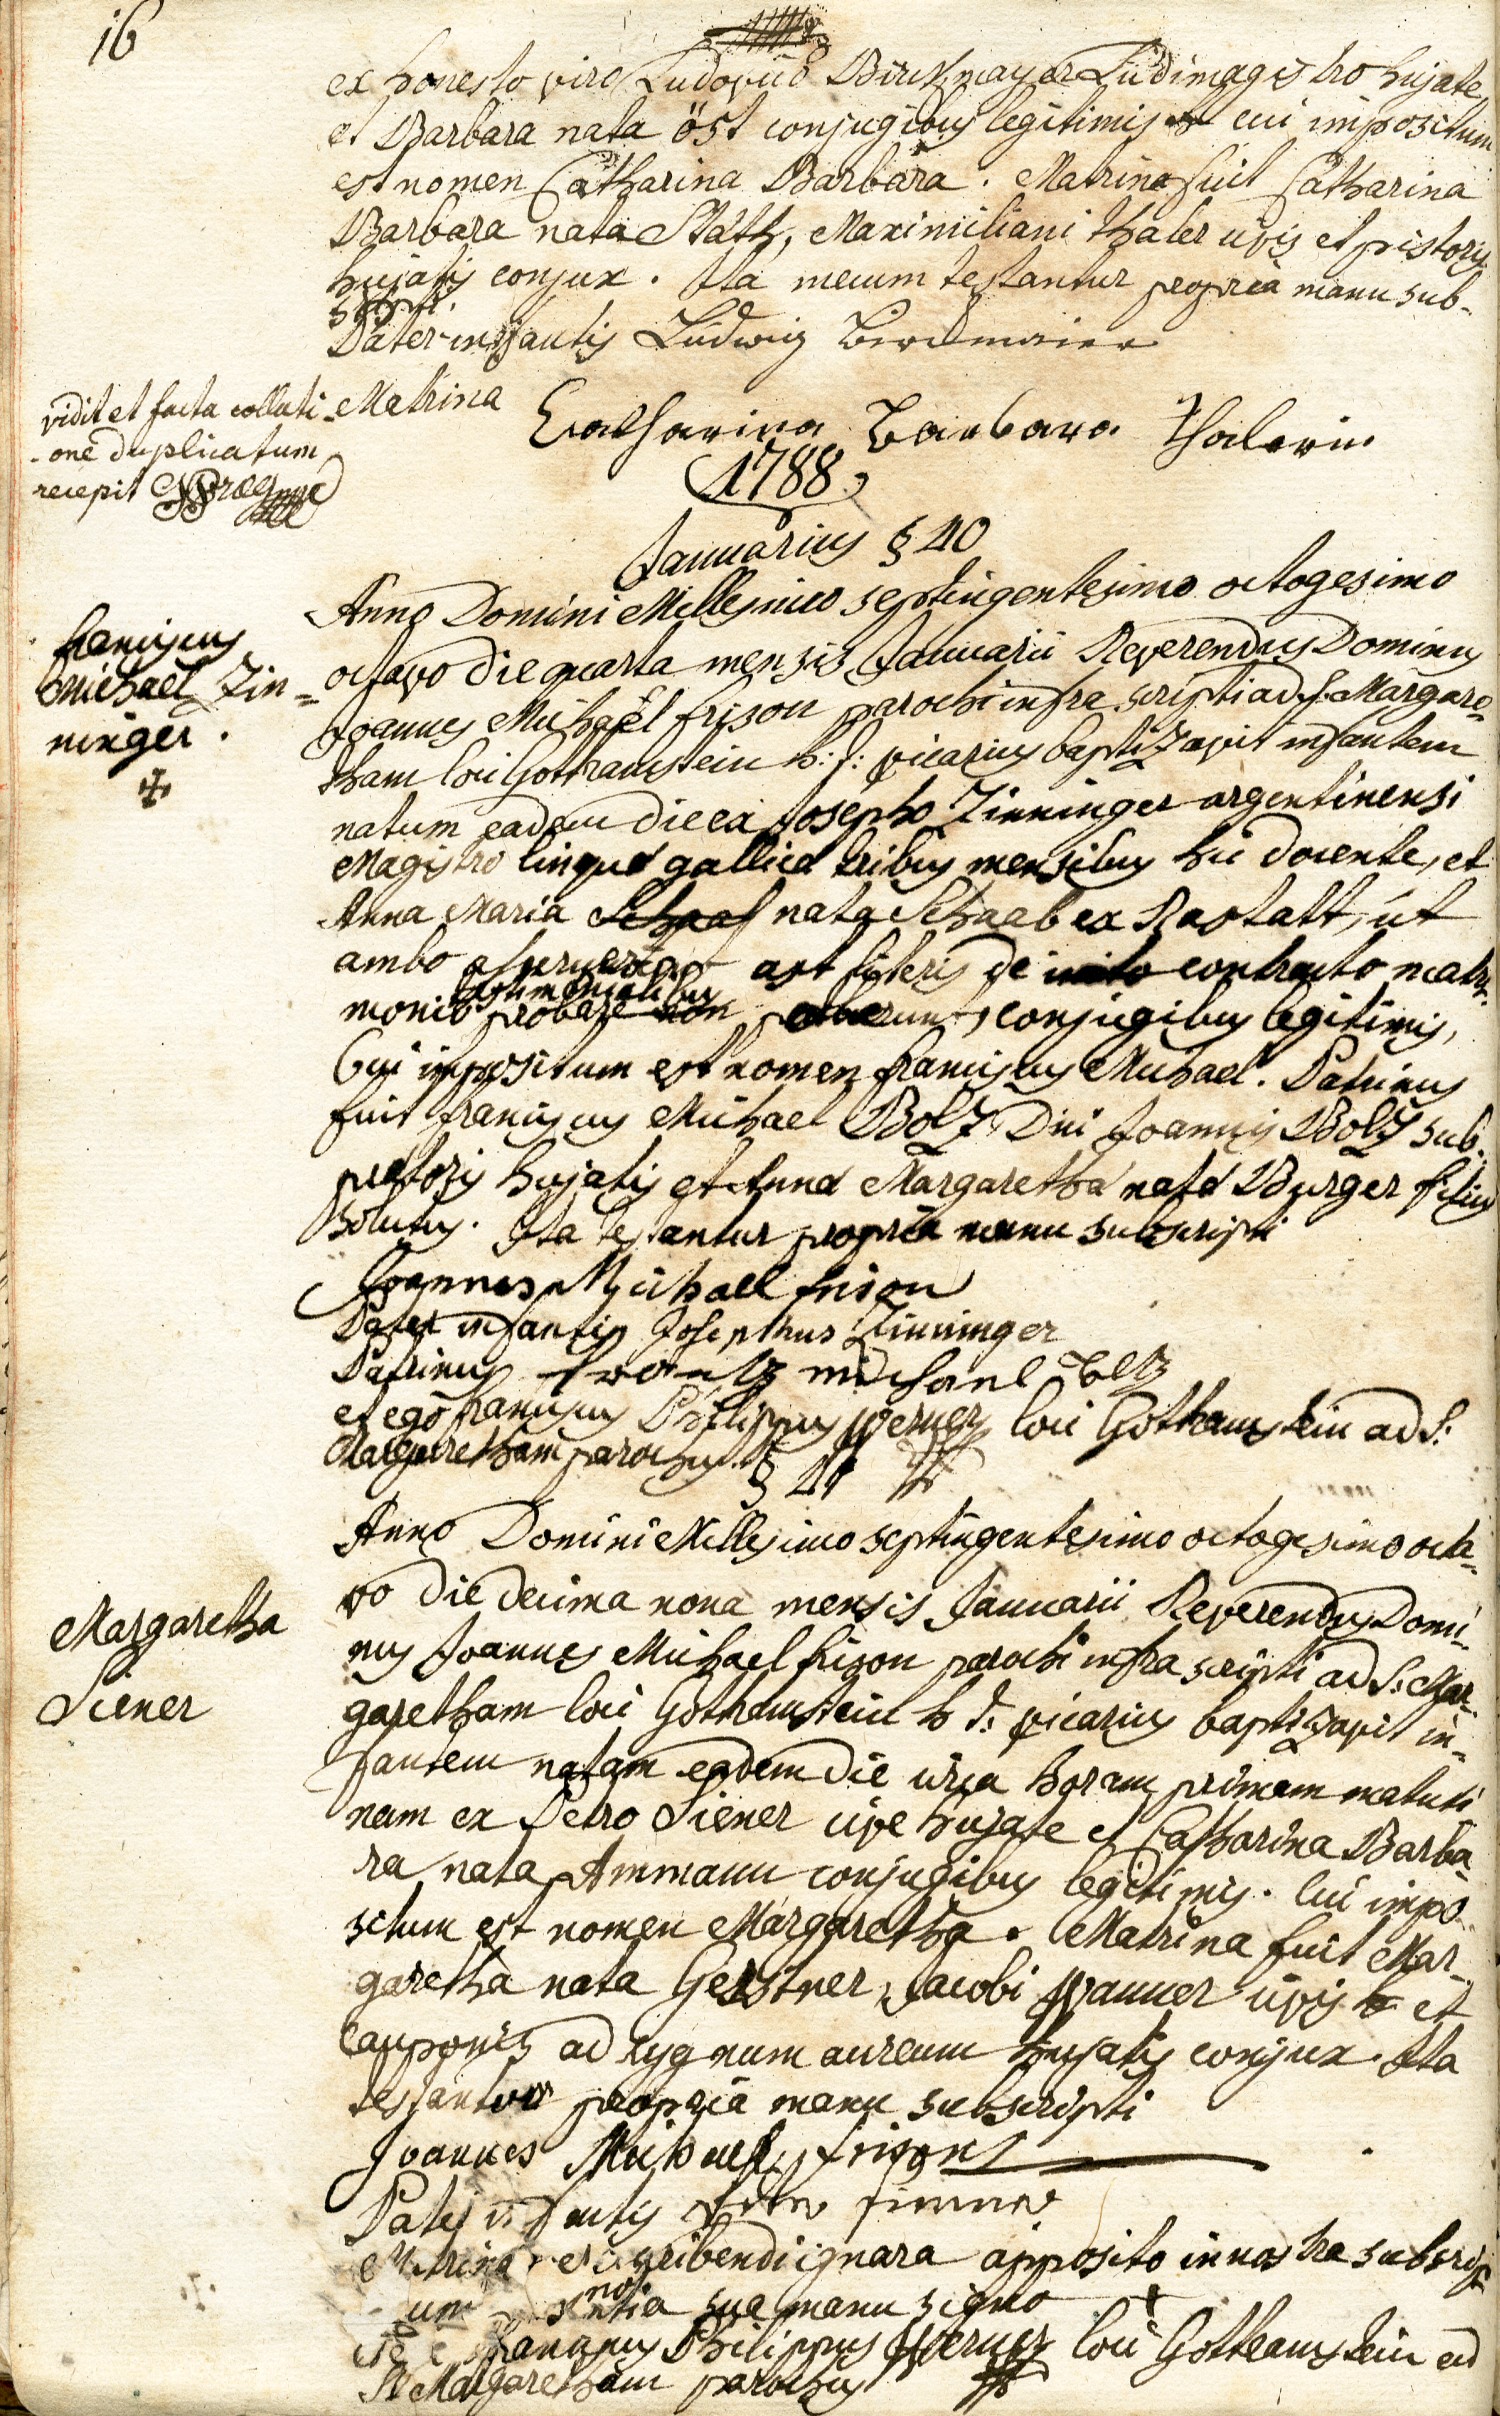 16
ex honesto viro Ludovico Birckmayer Ludimagistro hujate
et Barbara nata Öst conjugibus legitimis cui impositum
est nomen Catharina Barbara. Matrina fuit Catharina
Barbara nata Stath, Maximiliani Thaler civis et pistoris
hujatis conjux. Ita mecum testantur propria manu sub-
scripti.
Pater infantis Ludwig Birckmaier
Matrina Catharina Barbara Thalerin
vidit et facta collati-
one duplicatum
recepit
1788
Januarius § 40
Franciscus
Michaël Zin-
ninger.
Anno Domini Millesimo septingentesimo octogesimo
octavo die quarta mensis Januarii Reverendus Dominus
Joannes Michaël Frison parochi infra scripti ad S. Margare-
tham loci Gottramstein h: t: vicarius baptizavit infantem
natum eadem die ex Josepho Zinninger argentinensi
Magistro linguæ gallicæ tribus mensibus hic docente, et
Anna Maria Schaaf nata Schaeb ex Rastatt, ut
ambo asseruerunt ast literis de inito contracto matri-
testimonialibus
monio probare non potuerunt, conjugibus legitimis,
Cui impositum est nomen Franciscus Michael. Patrinus
fuit Franciscus Michael Bolz, Dni Joannis Bolz sub-
prætoris hujatis et Anna Margaretha nata Burger filius
solutus. Ita testantur propria manu subscripti
Joannes Michael Frison
Pater infantis Josephus Zinninger
Patrinus Frantz Michael Boltz
et ego Franciscus Philippus Werner loci Gottramstein ad S.
Margaretham parochus.
§ 41
Margaretha
Siener
Anno Domini Millesimo septingentesimo octogesimo octa-
vo die decima nona mensis Januarii Reverendus Domi-
nus Joannes Michael Frison parochi infra scripti ad S. Mar-
garetham loci Gottramstein h t: vicarius baptizavit in-
fantem natam eadem die circa horam primam matuti
nam ex Petro Siener cive hujate et Catharina Barba-
ra nata Ammann conjugibus legitimis. Cui impo-
situm est nomen Margaretha. Matrina fuit Mar-
garetha nata Gerstner, Jacobi Wanner civis et
cauponis ad cygnum aureum hujatis conjux. Ita
testantur propria manu subscripti
Joannes Michael Frison
Pater infantis Peter Siener
Matrina scribendi ignara apposito in nostra subscrip
sua manu signo +
Franciscus Philippus Werner loci Gottramstein ad
S Margaretham parochus